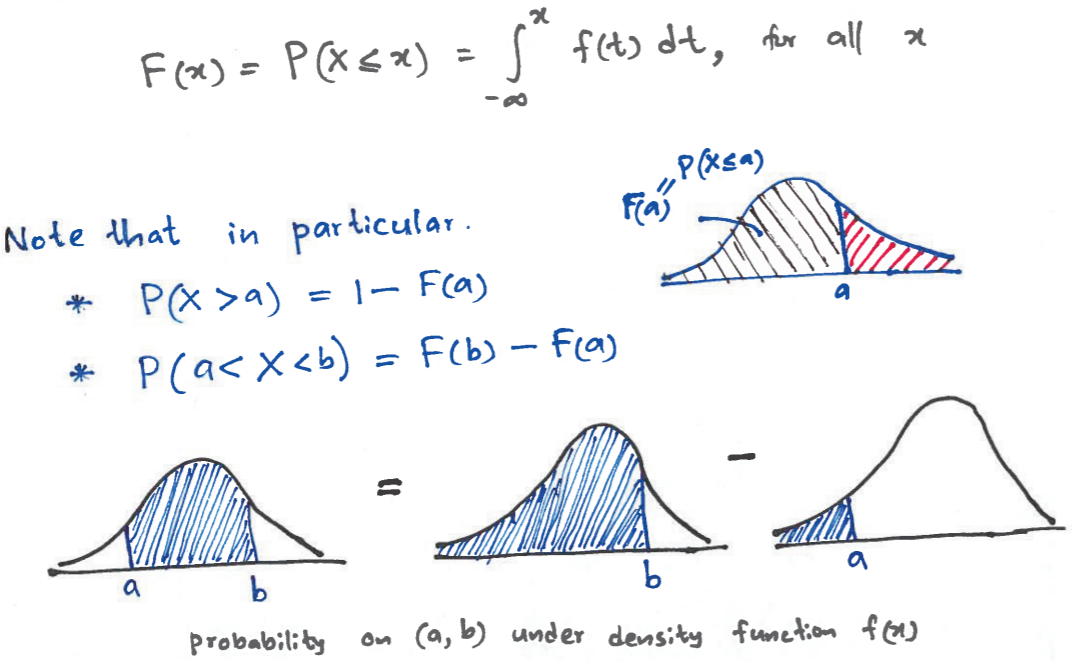 F(x) = P(X ≤ x) = ∫_{-∞}^{x} f(t) dt, for all x
P(X≤a)
=
F(a)
a
Note that in particular.
* P(X > a) = 1 - F(a)
* P(a < X < b) = F(b) - F(a)
a b = b - a
probability on (a, b) under density function f(x)